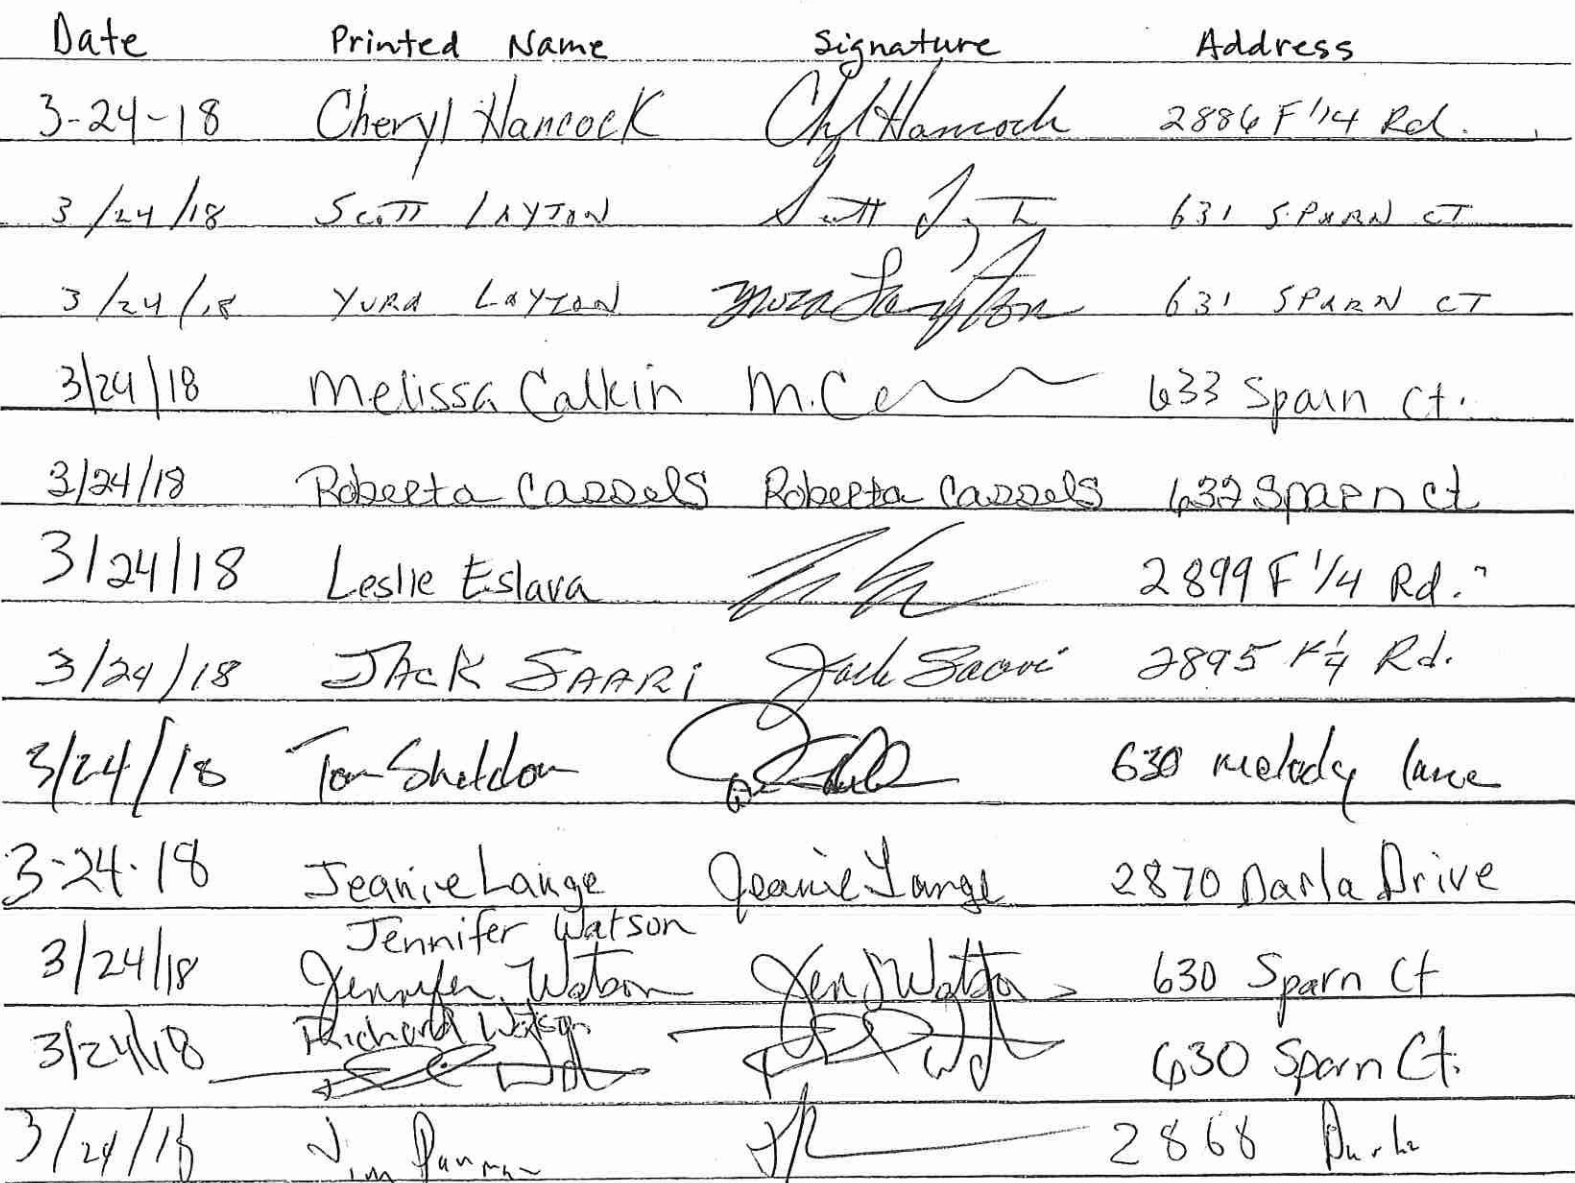 Date Printed Name Signature Address
3-24-18 Cheryl Hancock Chyl Hancock 2886 F 1/4 Rd.
3/24/18 Scott Layton Scott 631 SPARN CT
3/24/18 YURA LAYTON Yura Layton 631 SPARN CT
3/24/18 Melissa Calkin M.Ce 633 Sparn Ct.
3/24/18 Roberta Cassels Roberta Cassels 632 Sparn Ct
3/24/18 Leslie Eslava 2899 F 1/4 Rd.
3/24/18 JACK SAARI Jack Saari 2895 F 1/4 Rd.
3/24/18 Tom Sheldon 630 melody lane
3-24-18 Jeanie Lange Jeanie Lange 2870 Darla Drive
Jennifer Watson
3/24/18 Jennifer Watson Jen Watson 630 Sparn Ct
Richard Watson
3/24/18 630 Sparn Ct.
3/24/18 Jim 2868 Darla